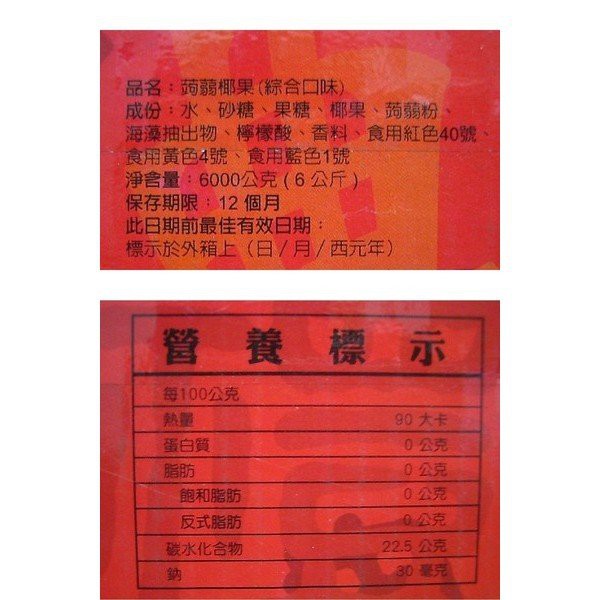 品名：蒟蒻椰果(綜合口味)
成份：水、砂糖、果糖、椰果、蒟蒻粉、
海藻抽出物、檸檬酸、香料、食用紅色40號、
食用黃色4號、食用藍色1號
淨含量：6000公克(6公斤)
保存期限：12個月
此日期前最佳有效日期：
標示於外箱上(日/月/西元年)
營養標示
每100公克
熱量 90 大卡
蛋白質 0 公克
脂肪 0 公克
飽和脂肪 0 公克
反式脂肪 0 公克
碳水化合物 22.5 公克
鈉 30 毫克